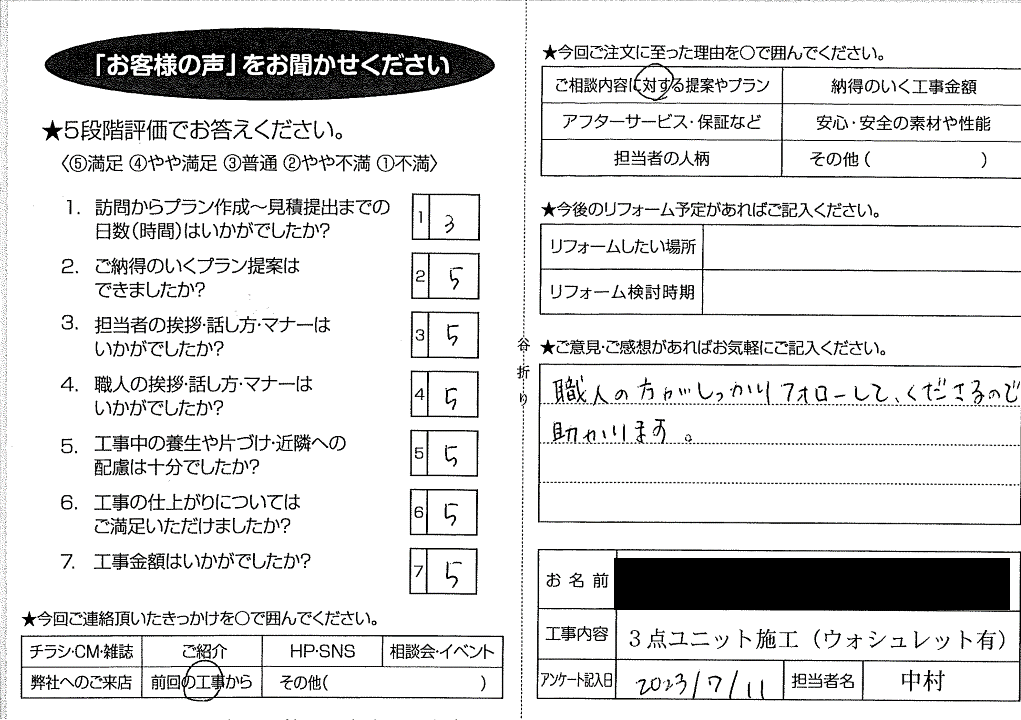 「お客様の声」をお聞かせください
★5段階評価でお答えください。
〈⑤満足 ④やや満足 ③普通 ②やや不満 ①不満〉
1. 訪問からプラン作成〜見積提出までの
日数(時間)はいかがでしたか?
1 3
2. ご納得のいくプラン提案は
できましたか?
2 5
3. 担当者の挨拶・話し方・マナーは
いかがでしたか?
3 5
4. 職人の挨拶・話し方・マナーは
いかがでしたか?
4 5
5. 工事中の養生や片づけ・近隣への
配慮は十分でしたか?
5 5
6. 工事の仕上がりについては
ご満足いただけましたか?
6 5
7. 工事金額はいかがでしたか?
7 5
★今回ご連絡頂いたきっかけを〇で囲んでください。
チラシ・CM・雑誌 ご紹介 HP・SNS 相談会・イベント
弊社へのご来店 前回の工事から その他( )
谷折り
★今回ご注文に至った理由を〇で囲んでください。
ご相談内容に対する提案やプラン 納得のいく工事金額
アフターサービス・保証など 安心・安全の素材や性能
担当者の人柄 その他( )
★今後のリフォーム予定があればご記入ください。
リフォームしたい場所
リフォーム検討時期
★ご意見・ご感想があればお気軽にご記入ください。
職人の方がしっかりフォローして、くださるので
助かります。
お名前
工事内容 3点ユニット施工(ウォシュレット有)
アンケート記入日 2023/7/11 担当者名 中村